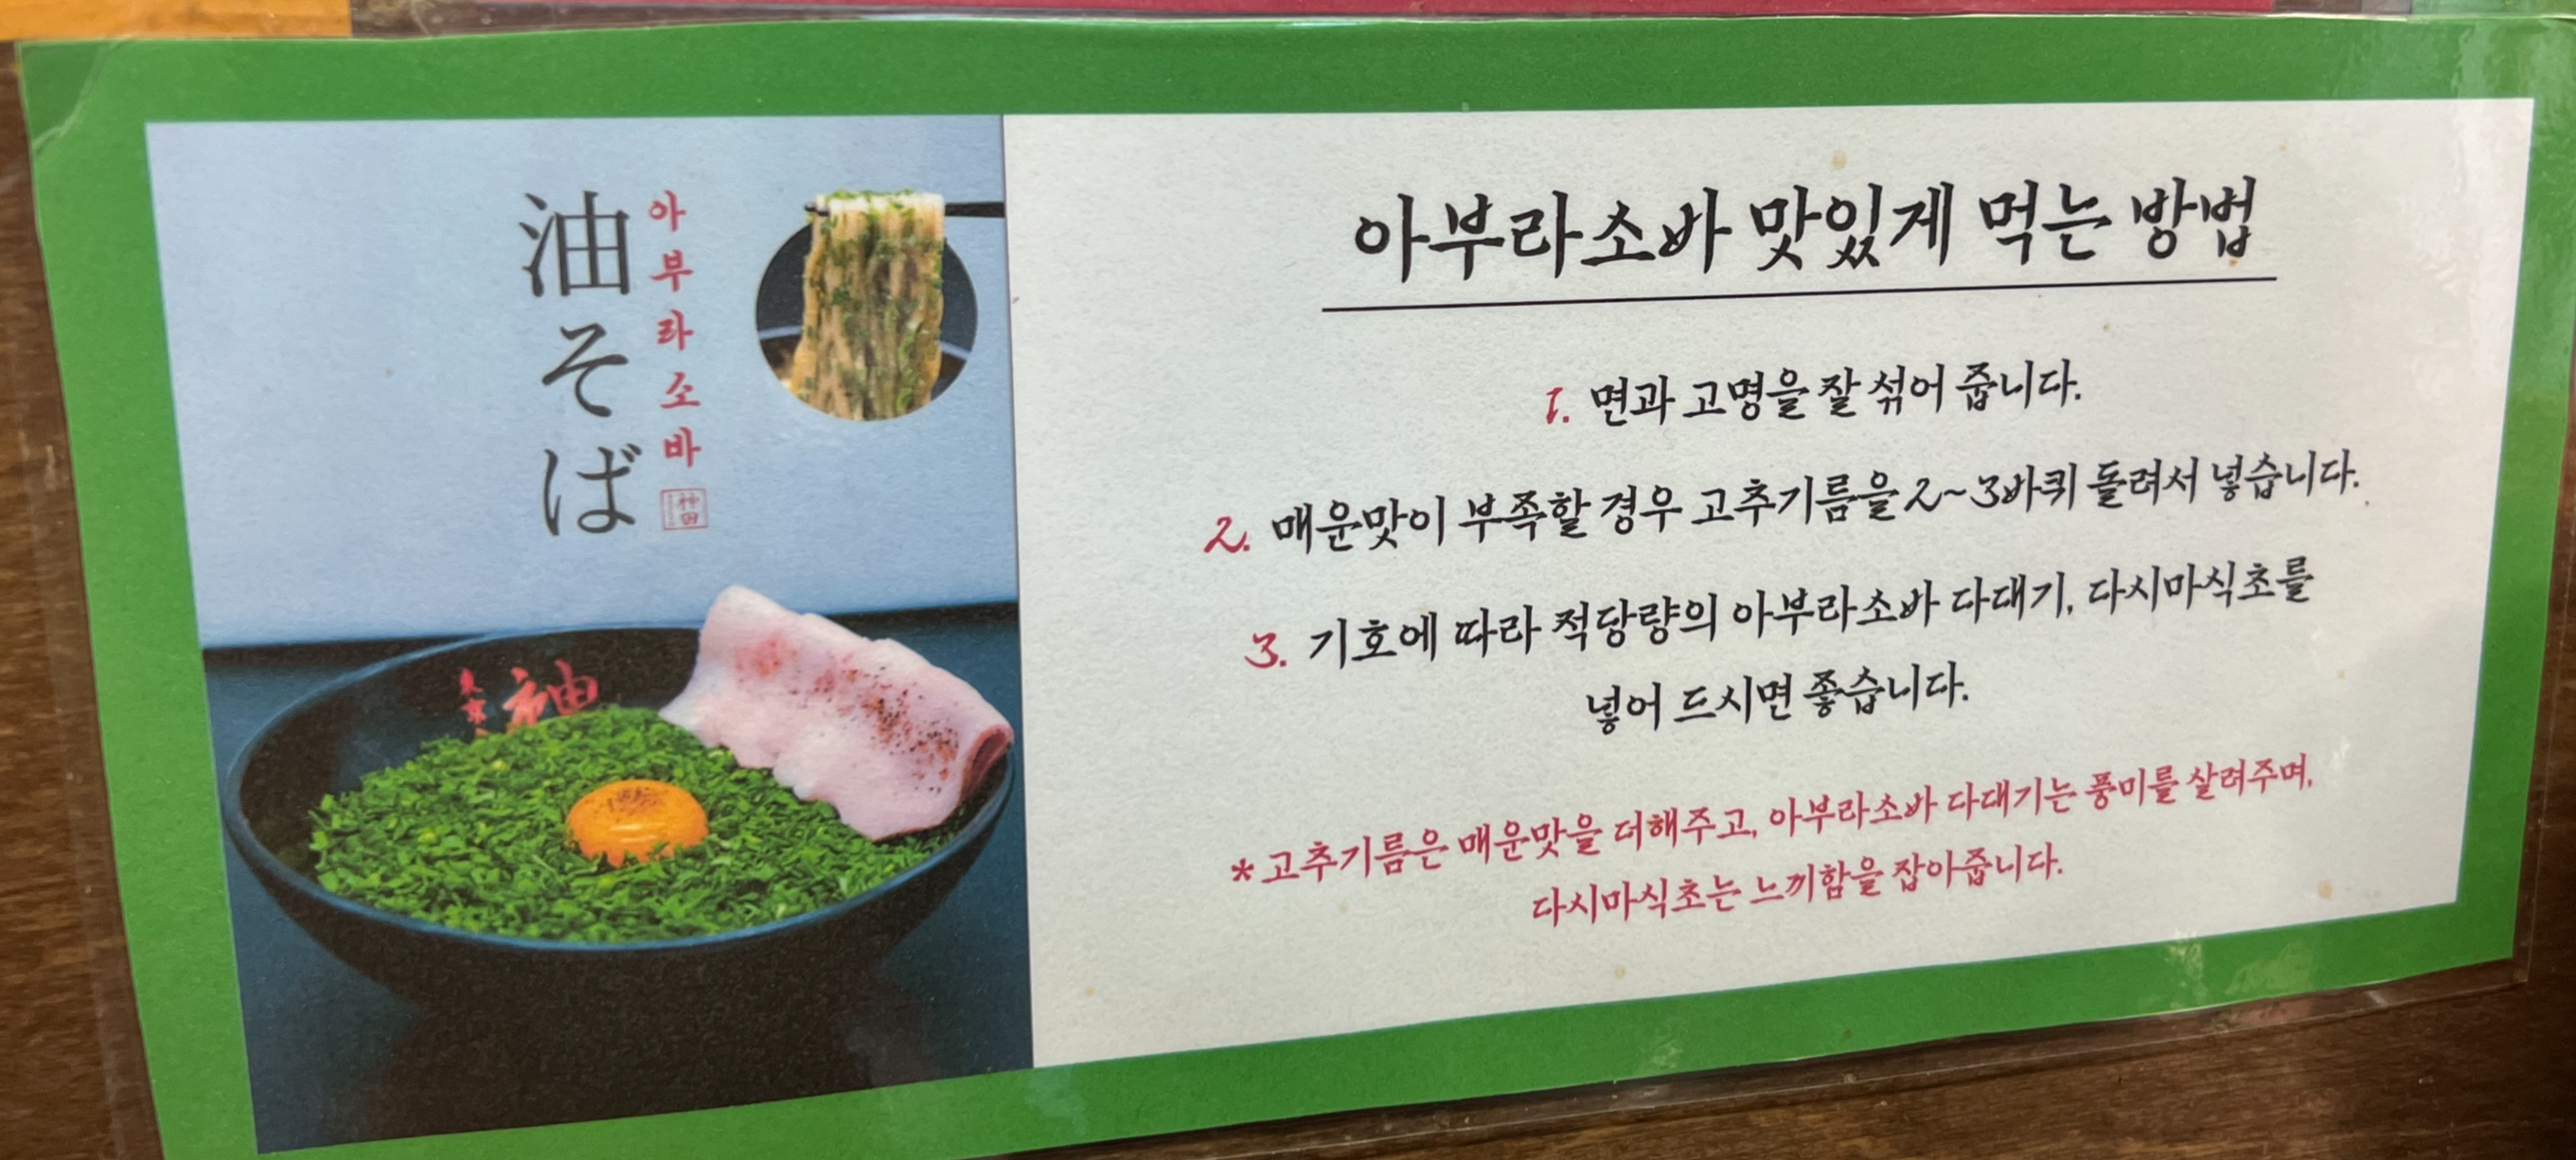 油そば
아부라소바
神
아부라소바 맛있게 먹는 방법
1. 면과 고명을 잘 섞어 줍니다.
2. 매운맛이 부족할 경우 고추기름을 2~3바퀴 돌려서 넣습니다.
3. 기호에 따라 적당량의 아부라소바 다대기, 다시마식초를
넣어 드시면 좋습니다.
*고추기름은 매운맛을 더해주고, 아부라소바 다대기는 풍미를 살려주며,
다시마식초는 느끼함을 잡아줍니다.